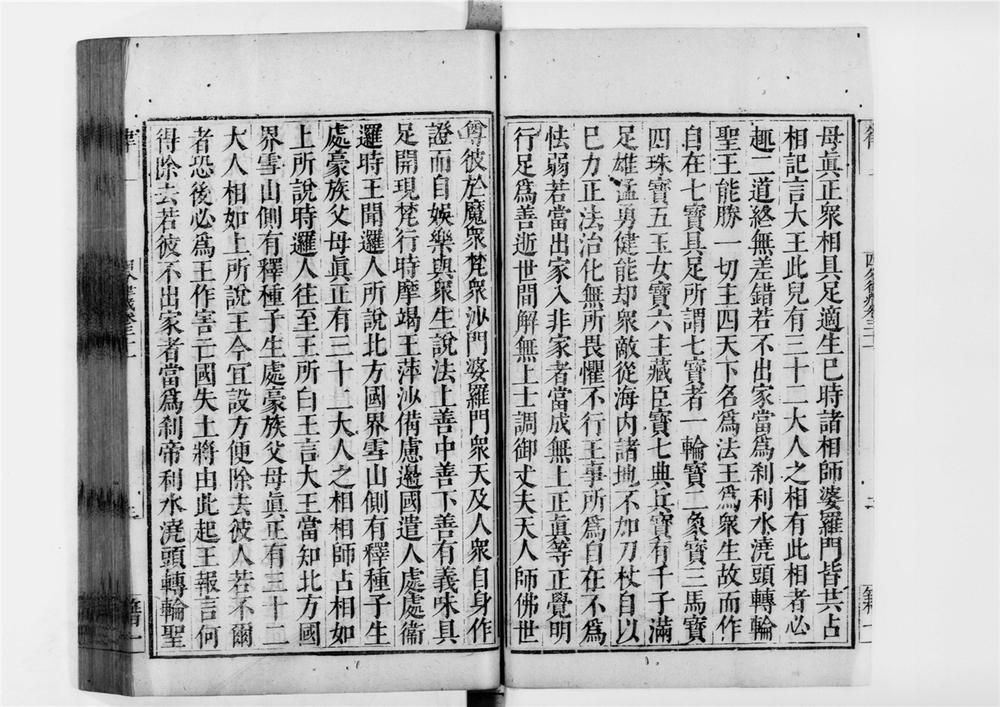 母眞正衆相具足適生已時諸相師婆羅門皆共占
相記言大王此兒有三十二大人之相有此相者必
趣二道終無差錯若不出家當爲刹利水澆頭轉輪
聖王能勝一切主四天下名爲法王爲衆生故而作
自在七寶具足所謂七寶者一輪寶二象寶三馬寶
四珠寶五玉女寶六主藏臣寶七典兵寶有千子滿
足雄猛勇健能却衆敵從海內諸地不加刀杖自以
已力正法治化無所畏懼不行王事所爲自在不爲
怯弱若當出家入非家者當成無上正眞等正覺明
行足爲善逝世間解無上士調御丈夫天人師佛世
尊彼於魔衆梵衆沙門婆羅門衆天及人衆自身作
證而自娛樂與衆生說法上善中善下善有義味具
足開現梵行時摩竭王蓱沙備慮邊國遣人處處衞
邏時王聞邏人所說北方國界雪山側有釋種子生
處豪族父母眞正有三十二大人之相相師占相如
上所說時邏人往至王所白王言大王當知北方國
界雪山側有釋種子生處豪族父母眞正有三十二
大人相如上所說王今宜設方便除去彼人若不爾
者恐後必爲王作害亡國失土將由此起王報言何
得除去若彼不出家者當爲刹帝利水澆頭轉輪聖